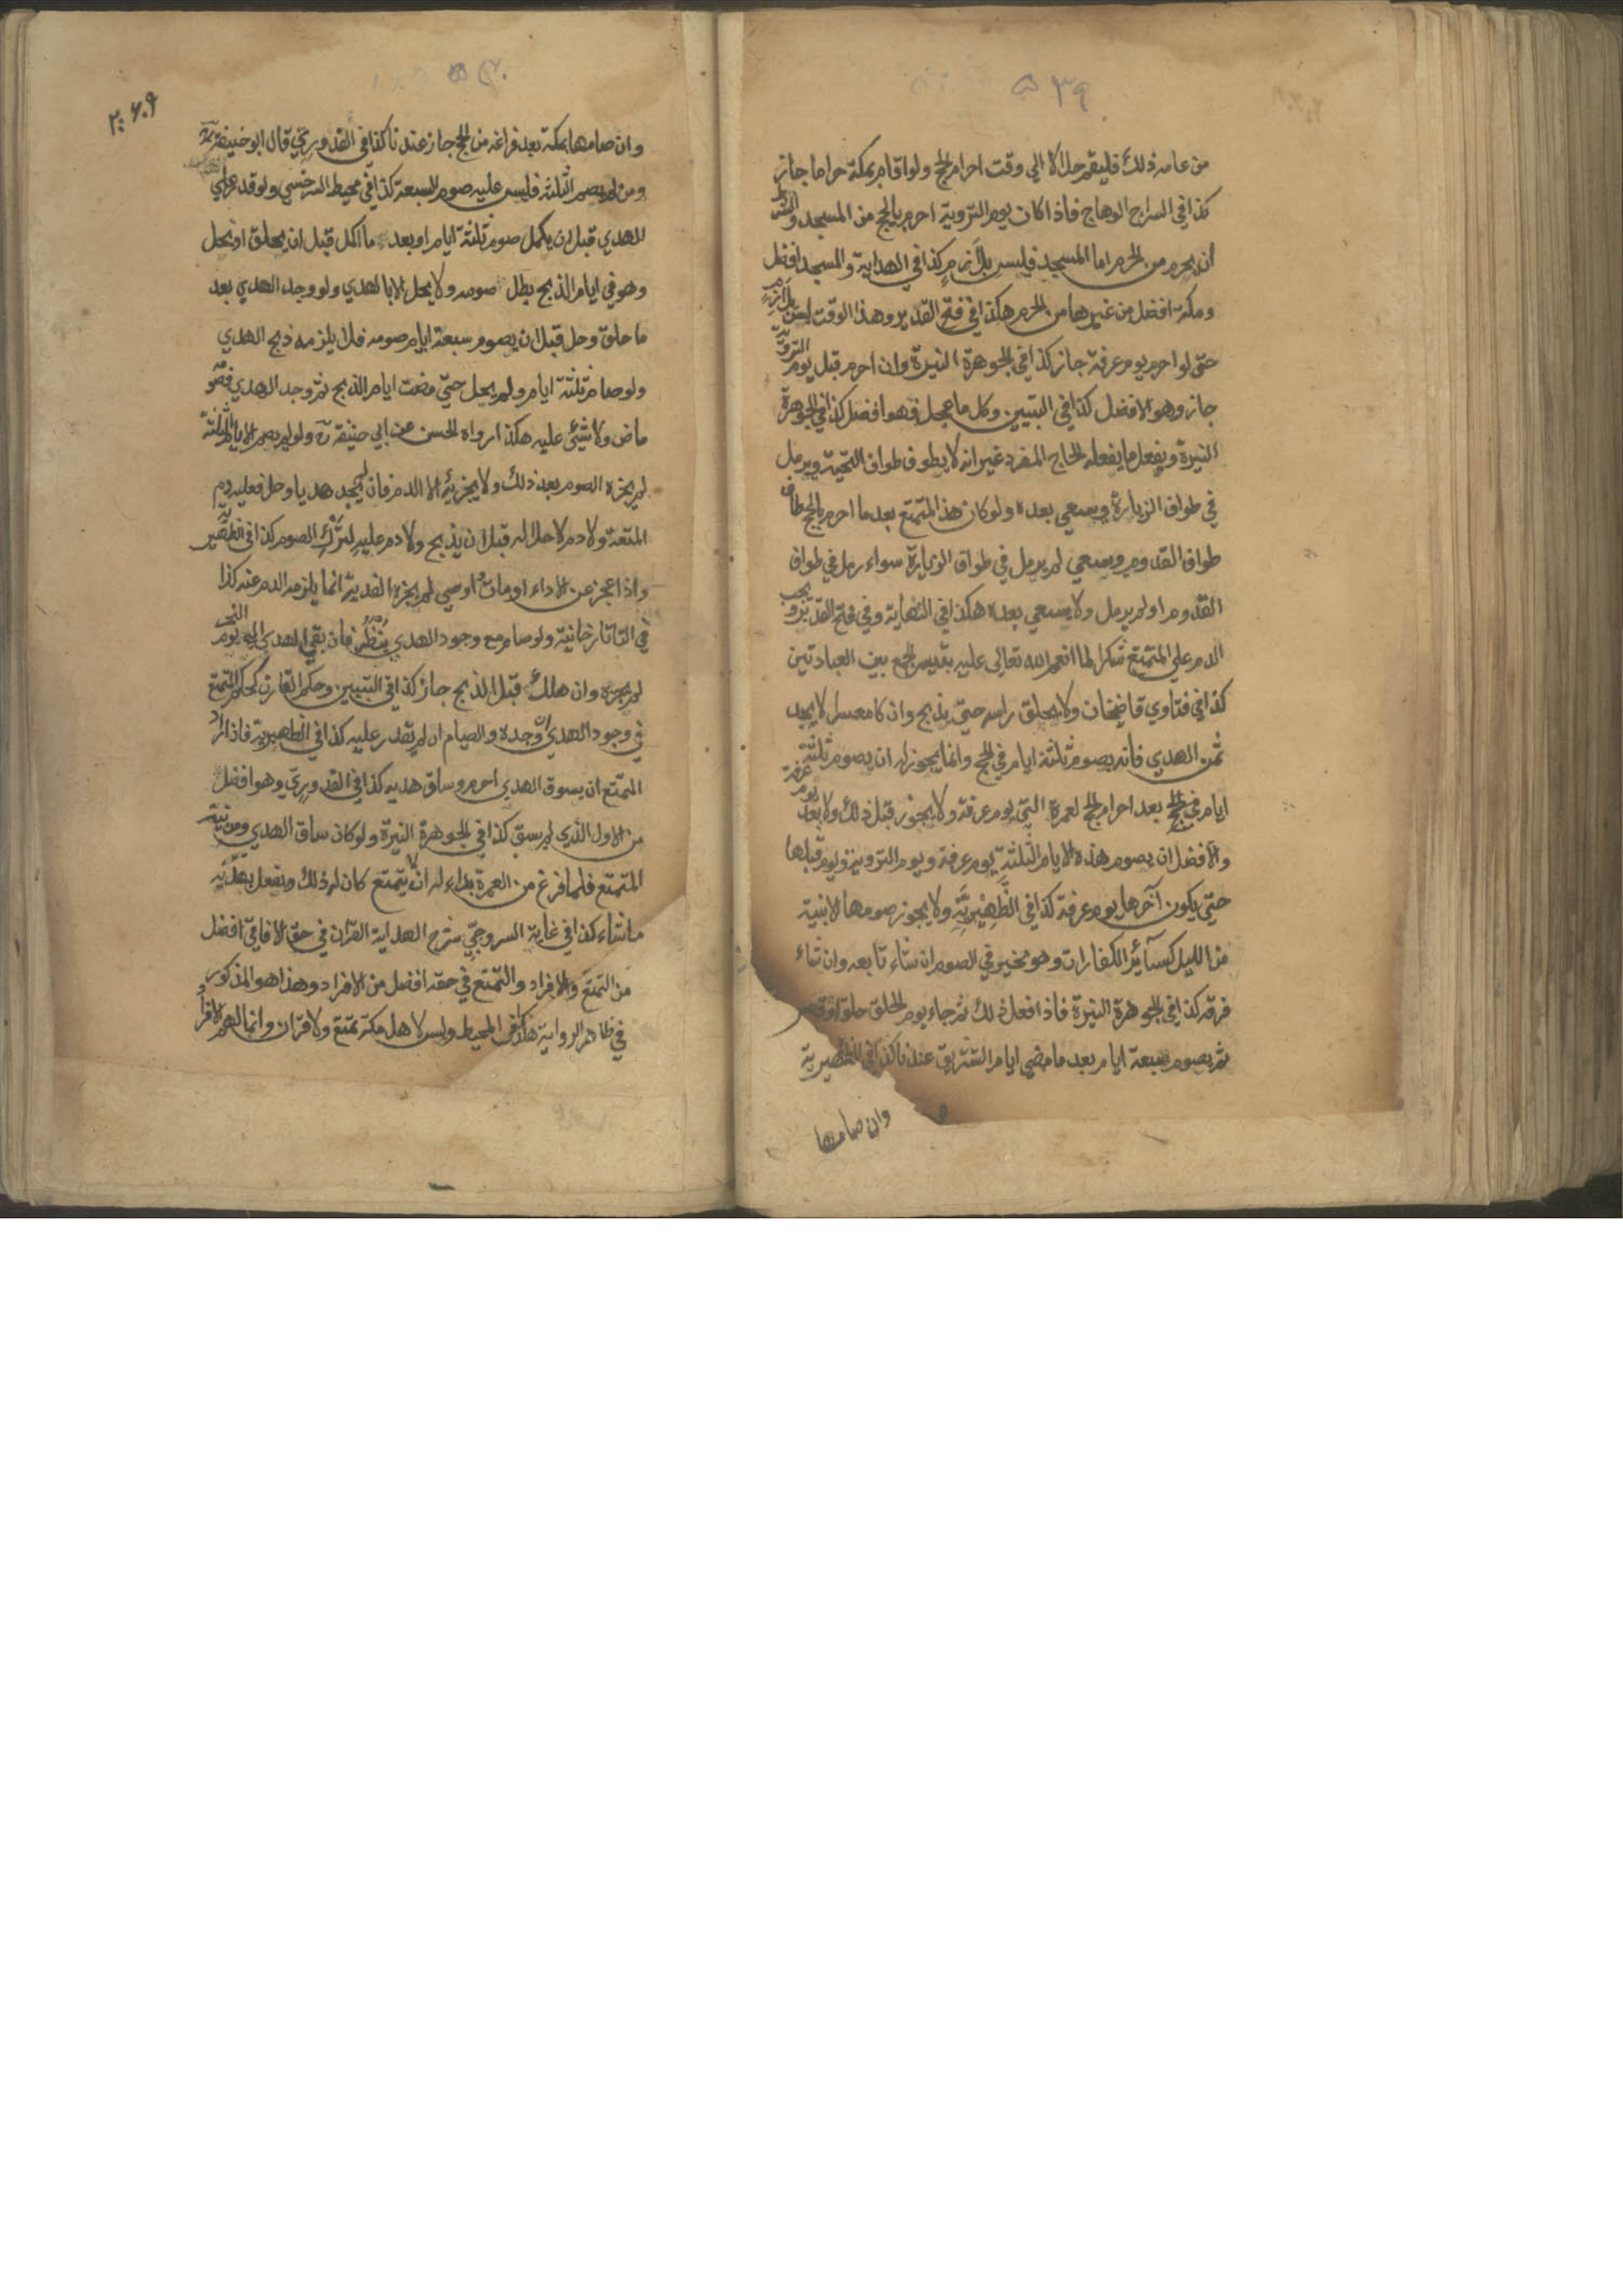 ٥٣٩
من عامه ذلك فليقم حلالا الى وقت احرام الحج ولو اقام بمكة حراما جاز
كذا في السراج الوهاج فاذا كان يوم التروية احرم بالحج من المسجد والشرط
ان يحرم من الحرم اما المسجد فليس بلازم كذا في الهداية والمسجد افضل
ومكة افضل من غيرها من الحرم هكذا في فتح القدير وهذا الوقت ليس بلازم
حتى لو احرم يوم عرفة جاز كذا في الجوهرة النيرة وان احرم قبل يوم التروية
جاز وهو الافضل كذا في التبيين وكل ما عجل فهو افضل كذا في الجوهرة
النيرة ويفعل ما يفعله الحاج المفرد غير انه لا يطوف طواف التحية ويرمل
في طواف الزيارة ويسعى بعده ولو كان هذا المتمتع بعد ما احرم بالحج طاف
طواف القدوم وسعى لم يرمل في طواف الزيارة سواء رمل في طواف
القدوم او لم يرمل ولا يسعى بعده هكذا في النهاية وفي فتح القدير ويجب
الدم على المتمتع شكرا لما انعم الله تعالى عليه بتيسير الجمع بين العبادتين
كذا في فتاوي قاضيخان ولا يحلق راسه حتى يذبح وان كا معسرا لا يجد
ثمن الهدي فانه يصوم ثلثة ايام في الحج وانما يجوز له ان يصوم ثلثة
ايام في الحج بعد احرام الحج لعمرة التي يوم عرفة ولا يجوز قبل ذلك ولا بعد يوم عرفة
والافضل ان يصوم هذه الايام الثلثة يوم عرفة ويوم التروية ويوم قبلها
حتى يكون آخرها يوم عرفة كذا في الظهيرية ولا يجوز صومها الا بنية
من الليل كسائر الكفارات وهو مخير في الصوم ان شاء تابعه وان شاء
فرقه كذا في الجوهرة النيرة فاذا فعل ذلك ثم جاء يوم الحلق حلق او قصر
ثم يصوم سبعة ايام بعد ما مضي ايام التشريق عندنا كذا في الظهيرية
وان صامها
وان صامها بمكة بعد فراغه من الحج جاز عندنا كذا في القدوري قال ابو حنيفة رح
ومن لم يصم الثلثة فليس عليه صوم السبعة كذا في محيط السرخسي ولو قدر علي
الهدي قبل ان يكمل صوم ثلثة ايام او بعد ما اكمل قبل ان يحلق او يحل
وهو في ايام الذبح بطل صومه ولا يحل الا بالهدي ولو وجد الهدي بعد
ما حلق وحل قبل ان يصوم سبعة ايام صومه فلا يلزمه ذبح الهدي
ولو صام ثلثة ايام ولم يحل حتى مضت ايام الذبح ثم وجد الهدي فصومه
ماض ولا شيئ عليه هكذا رواه الحسن عن ابي حنيفة رح ولو لم يصم الايام الثلثة
لم يجزه الصوم بعد ذلك ولا يجزيه الا الدم فان لم يجد هديا وحل فعليه دم
المتعة ولا دم لاحلاله قبل ان يذبح ولا دم عليه لترك الصوم كذا في الظهيرية
واذا عجز عن الاداء او مات او اوصي لم يجزه الفدية انما يلزمه الدم عنه كذا
في التاتارخانية ولو صام مع وجود الهدي ينظر فان بقي الهدي الى يوم النحر
لم يجزه وان هلك قبل الذبح جاز كذا في التبيين وحكم القارن كحكم المتمتع
في وجود الهدي ان وجده والصيام ان لم يقدر عليه كذا في الظهيرية فاذا اراد
المتمتع ان يسوق الهدي احرم وساق هديه كذا في القدوري وهو افضل
من الاول الذي لم يسق كذا في الجوهرة النيرة ولو كان ساق الهدي ومن نيته
المتمتع فلما فرغ من العمرة بداء له ان لا يتمتع كان له ذلك ويفعل بهديه
ما شاء كذا في غاية السروجي شرح الهداية القران في حق الافاقي افضل
من التمتع والافراد والتمتع في حقه افضل من الافراد وهذا هو المذكور
في ظاهر الرواية هكذا في المحيط وليس لاهل مكة تمتع ولا قران وانما لهم الافراد